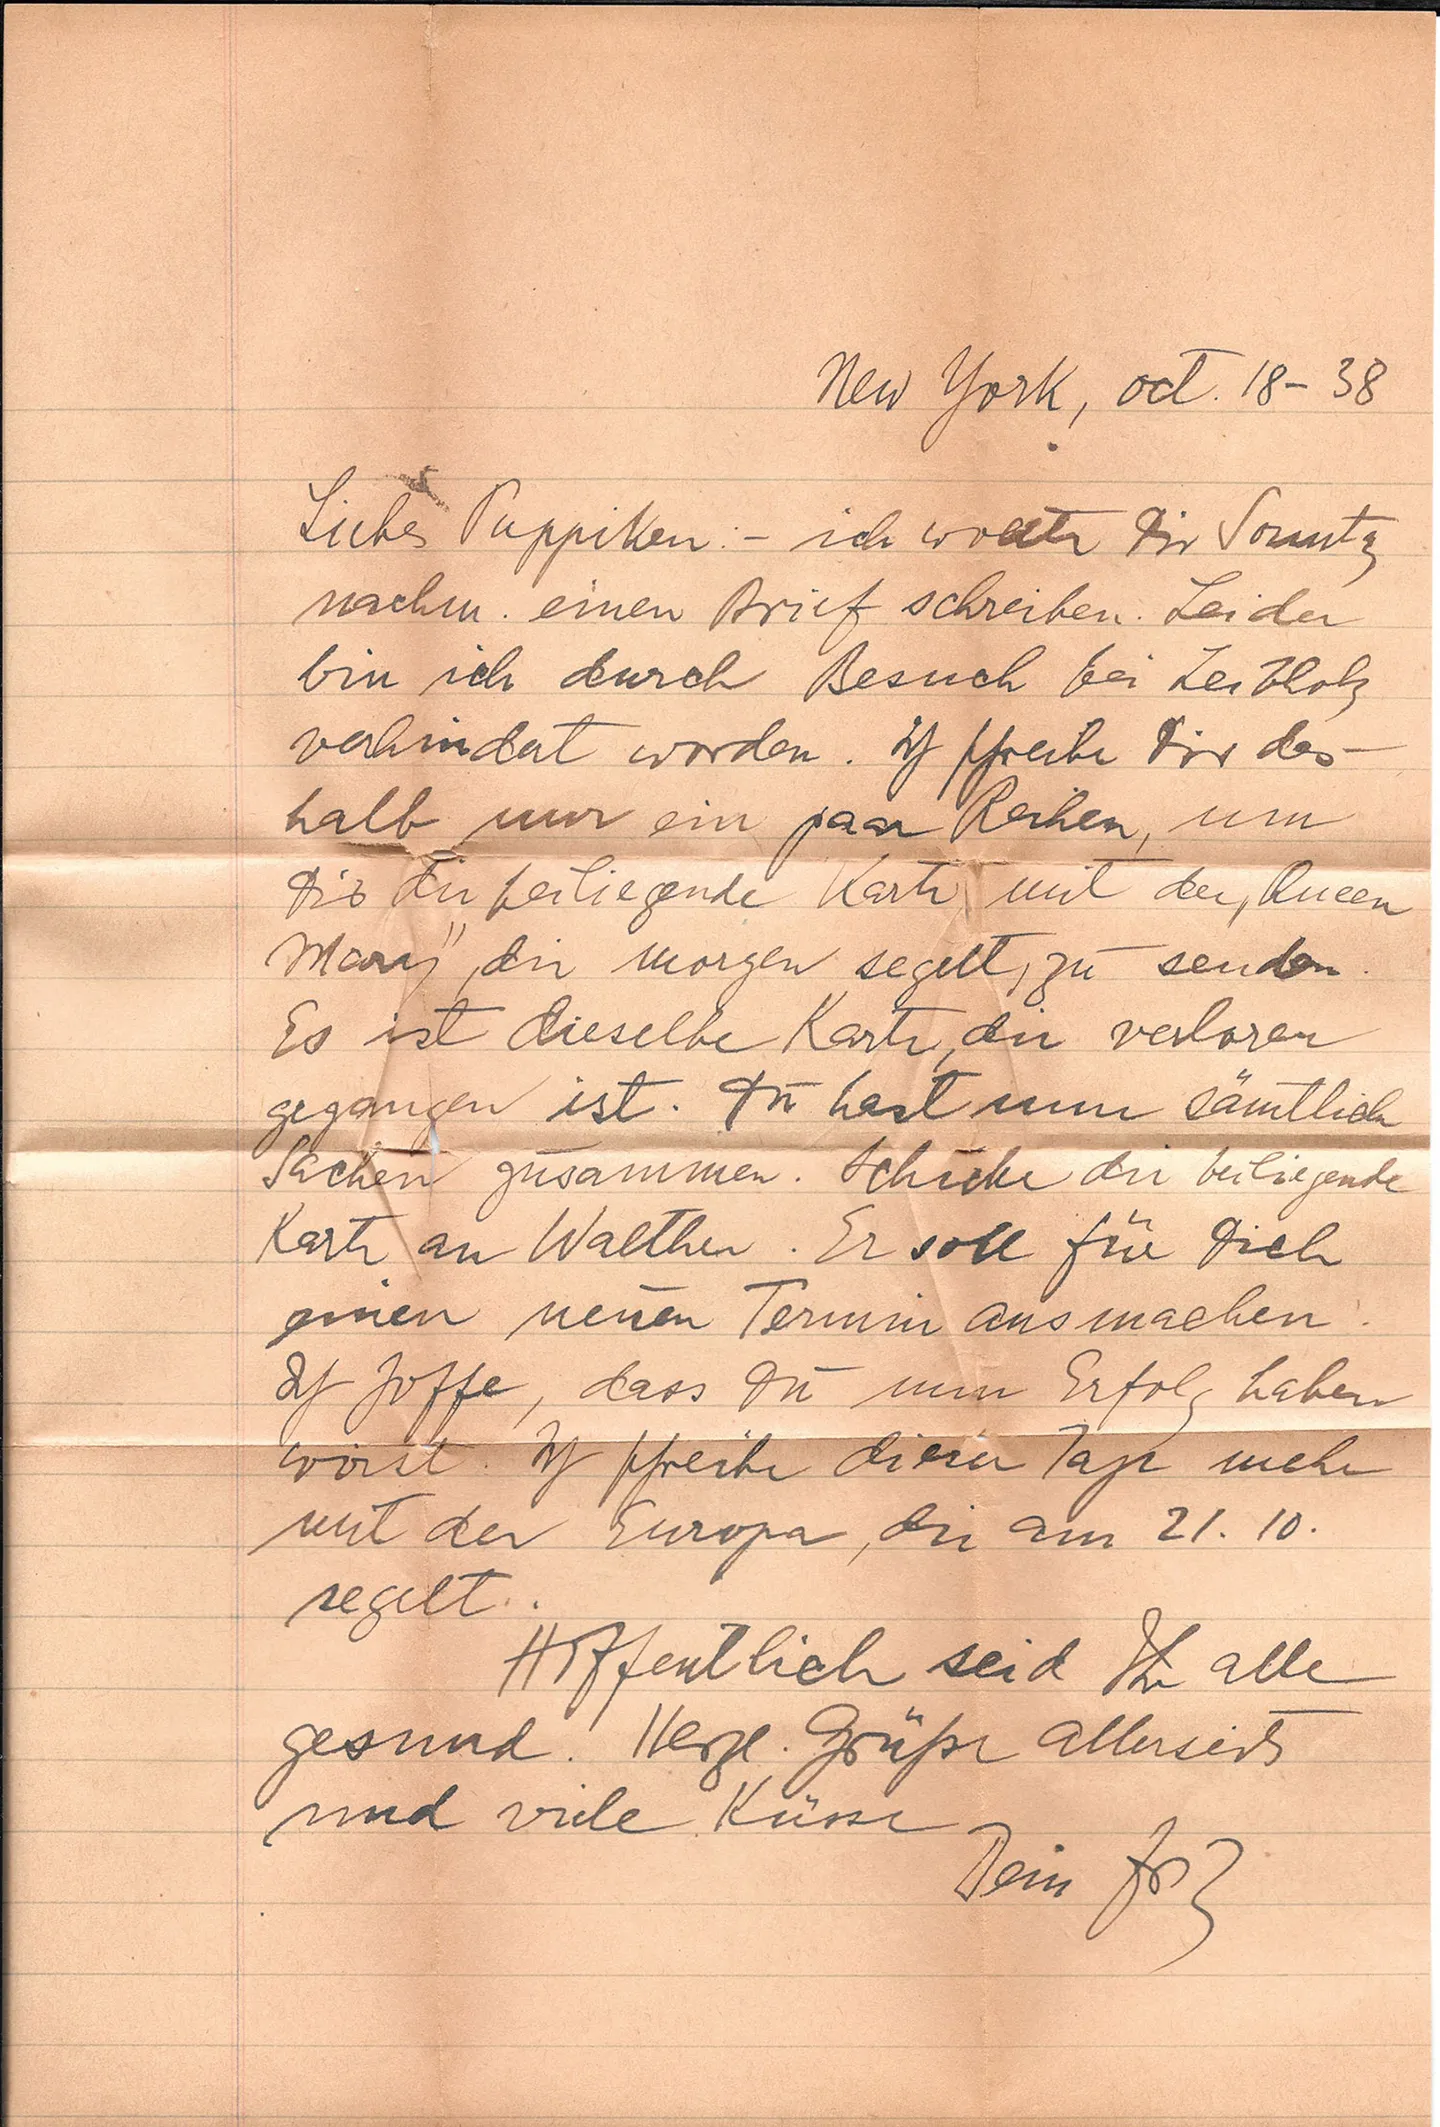 New York, oct. 18 - 38
Liebes Puppiken: - ich wollte Dir Sonntg
nachm. einen Brief schreiben. Leider
bin ich durch Besuch bei
verhindert worden. Ich schreibe Dir des-
halb nur ein paar Reihen, um
Dir die beiliegende Karte mit der „Queen
Mary", die morgen segelt, zu senden.
Es ist dieselbe Karte, die verloren
gegangen ist. Du hast nun sämtliche
Sachen zusammen. Schicke die beiliegende
Karte an Walther. Er soll für Dich
einen neuen Termin ausmachen.
Ich hoffe, dass Du nun Erfolg haben
wirst. Ich schreibe dieser Tage mehr
mit der Europa, die am 21. 10.
segelt.
Hoffentlich seid Ihr alle
gesund. Herzl. Grüße allerseits
und viele Küsse
Dein